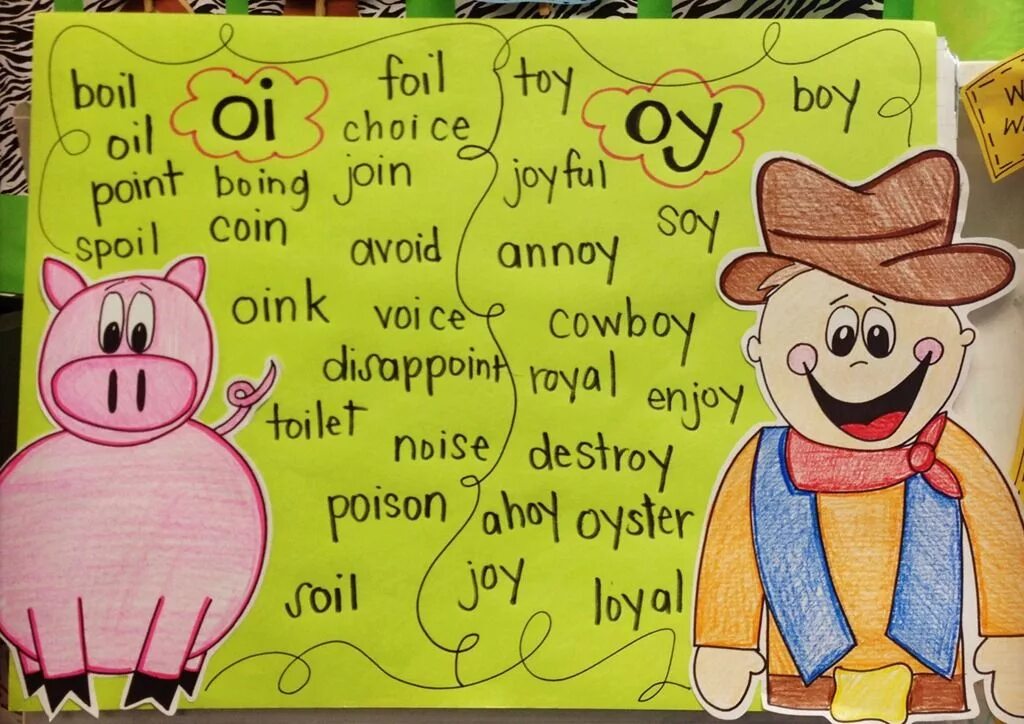 oi
boil
foil
oil
choice
point
boing
join
spoil
coin
avoid
oink
voice
disappoint
toilet
noise
poison
soil
oy
toy
boy
joyful
soy
annoy
cowboy
royal
enjoy
destroy
ahoy
oyster
joy
loyal